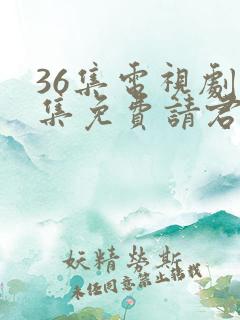 36集電視劇
集免費請君
妖精勞斯
未经同意禁止转载